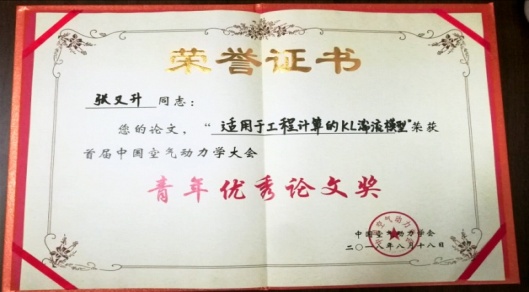 荣誉证书
张又升 同志：
您的论文，“适用于工程计算的KL湍流模型”荣获
首届中国空气动力学大会
青年优秀论文奖
中国空气动力学会
二〇一八年八月十八日